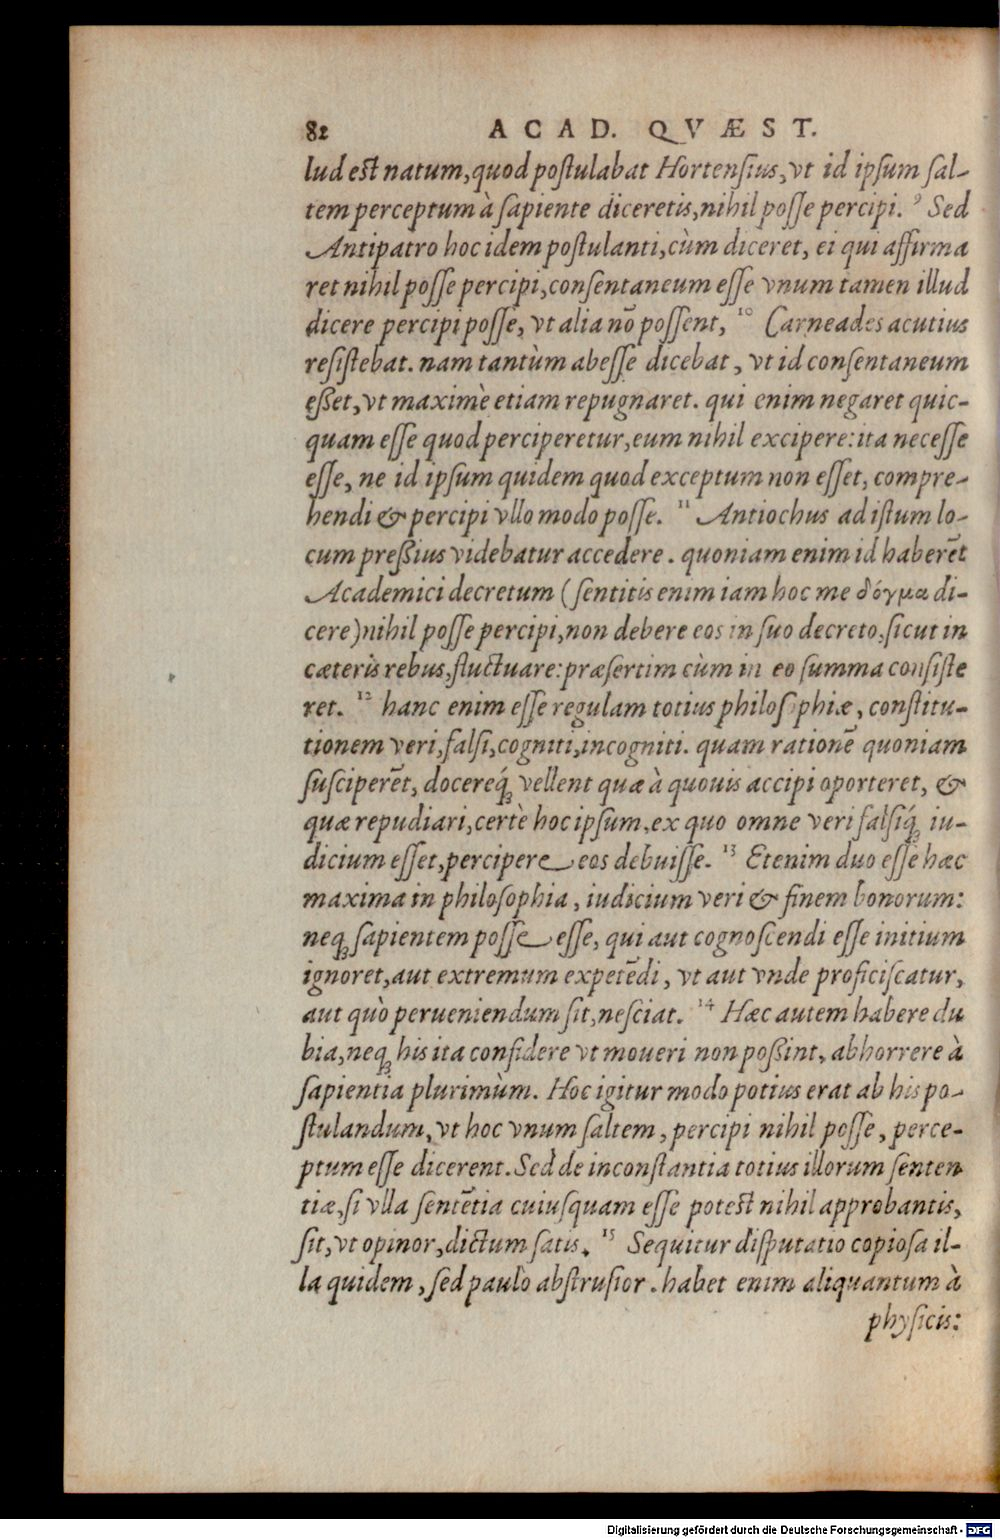 82 ACAD. QVÆST.
lud est natum, quod postulabat Hortensius, vt id ipsum sal-
tem perceptum à sapiente diceretis, nihil posse percipi. 9 Sed
Antipatro hoc idem postulanti, cùm diceret, ei qui affirma
ret nihil posse percipi, consentaneum esse vnum tamen illud
dicere percipi posse, vt alia nō possent, 10 Carneades acutius
resistebat. nam tantùm abesse dicebat, vt id consentaneum
eßet, vt maximè etiam repugnaret. qui enim negaret quic-
quam esse quod perciperetur, eum nihil excipere: ita necesse
esse, ne id ipsum quidem quod exceptum non esset, compre-
hendi & percipi vllo modo posse. 11 Antiochus ad istum lo-
cum preßius videbatur accedere. quoniam enim id haberēt
Academici decretum (sentitis enim iam hoc me δόγμα di-
cere) nihil posse percipi, non debere eos in suo decreto, sicut in
cæteris rebus, fluctuare: præsertim cùm in eo summa consiste
ret. 12 hanc enim esse regulam totius philosophiæ, constitu-
tionem veri, falsi, cogniti, incogniti. quam rationē quoniam
susciperēt, docereq́; vellent quæ à quouis accipi oporteret, &
quæ repudiari, certè hoc ipsum, ex quo omne veri falsiq́; iu-
dicium esset, percipere eos debuisse. 13 Etenim duo esse hæc
maxima in philosophia, iudicium veri & finem bonorum:
neq; sapientem posse esse, qui aut cognoscendi esse initium
ignoret, aut extremum expetēdi, vt aut vnde proficiscatur,
aut quò perueniendum sit, nesciat. 14 Hæc autem habere du
bia, neq; his ita confidere vt moueri non poßint, abhorrere à
sapientia plurimùm. Hoc igitur modo potius erat ab his po-
stulandum, vt hoc vnum saltem, percipi nihil posse, perce-
ptum esse dicerent. Sed de inconstantia totius illorum senten
tiæ, si vlla sentētia cuiusquam esse potest nihil approbantis,
sit, vt opinor, dictum satis. 15 Sequitur disputatio copiosa il-
la quidem, sed paulò abstrusior. habet enim aliquantum à
physicis:
Digitalisierung gefördert durch die Deutsche Forschungsgemeinschaft - DFG